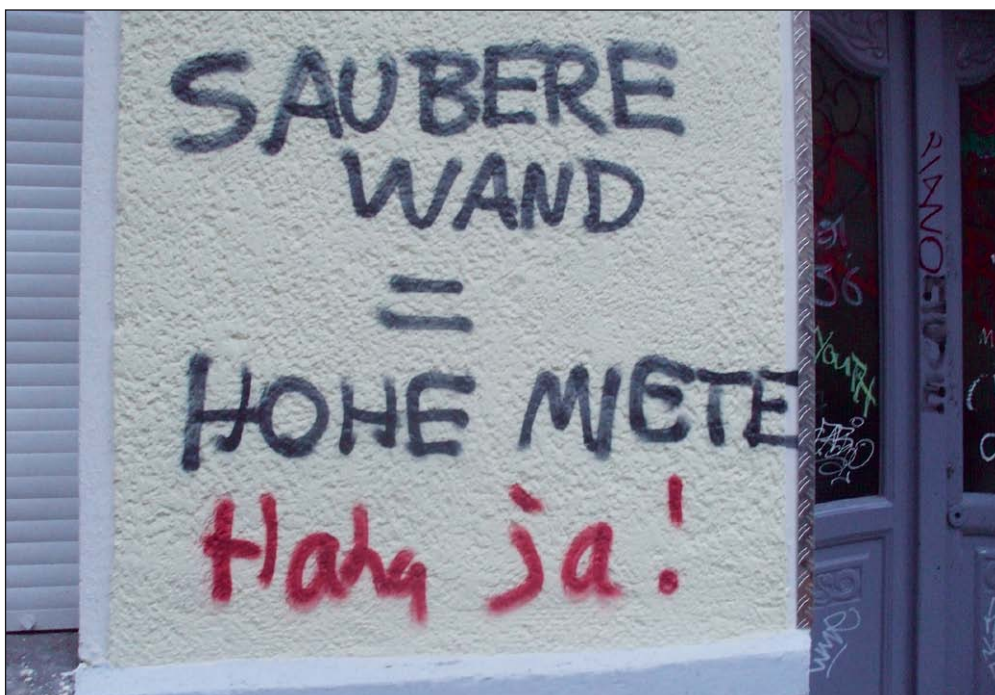 SAUBERE
WAND
=
HOHE MIETE
Haha ja!
YOUTH